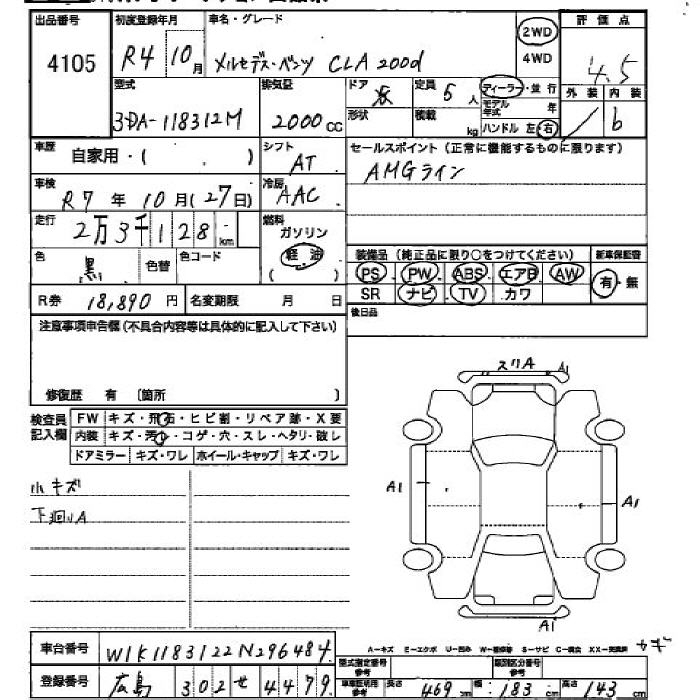 出品番号
4105
初度登録年月
R4 10月
車名・グレード
メルセデス・ベンツ CLA 200d
2WD
4WD
評価点
4.5
型式
3DA-118312M
排気量
2000 CC
ドア
5
形状
定員
5人
積載
kg
ディーラー・並行
モデル年式 年
ハンドル 左・右
外装 内装
b
車歴
自家用・( )
シフト
AT
セールスポイント(正常に機能するものに限ります)
AMGライン
車検
R7年10月(27日)
冷房
AAC
走行
2万3千128km
燃料
ガソリン
軽油
( )
色
黒
色替
色コード
装備品(純正品に限り○をつけてください)
新車保証書
PS PW ABS エアB AW
有・無
SR ナビ TV カワ
R券 18,890円
名変期限 月 日
後日品
注意事項申告欄(不具合内容等は具体的に記入して下さい)
修復歴 有 〔箇所 〕
検査員記入欄
FW キズ・飛石・ヒビ割・リペア跡・X要
内装 キズ・汚レ・コゲ・穴・スレ・ヘタリ・破レ
ドアミラー キズ・ワレ ホイール・キャップ キズ・ワレ
小キズ
下廻リA
スリA A1
A1
A1
A1
A-キズ E-エクボ U-凹み W-補修跡 S-サビ C-腐食 XX-交換済
車台番号
W1K1183122N296484
登録番号
広島 302 せ 4479
型式指定番号 参考
類別区分番号 参考
車車証明用 参考
長さ 469cm
幅 183cm
高さ 143cm